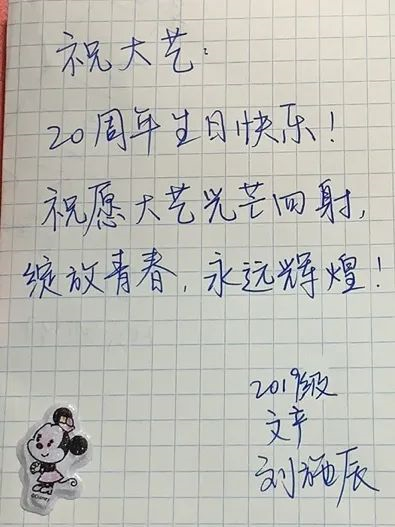 祝大艺:
20周年生日快乐!
祝愿大艺光芒四射,
绽放青春,永远辉煌!
2019级
文产
刘丽辰
©Disney